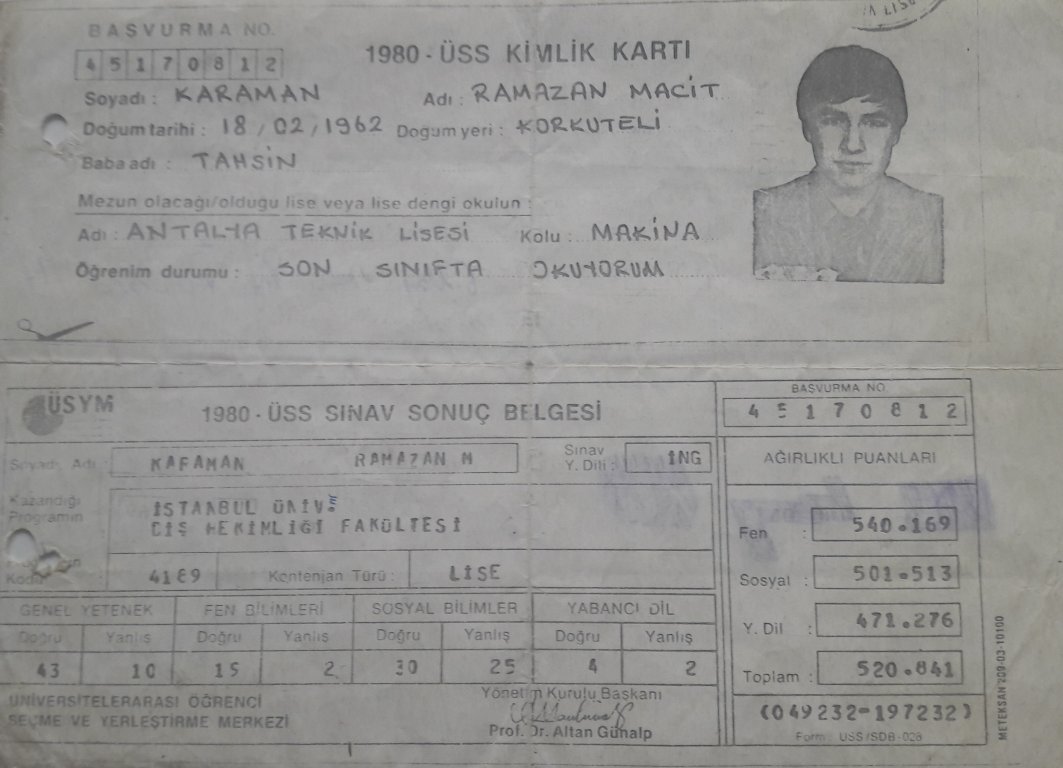 BAŞVURMA NO.
4 5 1 7 0 8 1 2
1980 - ÜSS KİMLİK KARTI
Soyadı : KARAMAN Adı : RAMAZAN MACİT
Doğum tarihi : 18 / 02 / 1962 Doğum yeri : KORKUTELİ
Baba adı : TAHSİN
Mezun olacağı/olduğu lise veya lise dengi okulun :
Adı : ANTALYA TEKNİK LİSESİ Kolu : MAKİNA
Öğrenim durumu : SON SINIFTA OKUYORUM
ÜSYM
1980 - ÜSS SINAV SONUÇ BELGESİ
BAŞVURMA NO
4 5 1 7 0 8 1 2
Soyadı, Adı : KARAMAN RAMAZAN M
Sınav Y. Dili : İNG
Kazandığı
Programın
İSTANBUL ÜNİVE
DİŞ HEKİMLİĞİ FAKÜLTESİ
Kodu : 4189 Kontenjan Türü : LİSE
GENEL YETENEK FEN BİLİMLERİ SOSYAL BİLİMLER YABANCI DİL
Doğru Yanlış Doğru Yanlış Doğru Yanlış Doğru Yanlış
43 10 15 2 30 25 4 2
ÜNİVERSİTELERARASI ÖĞRENCİ
SEÇME VE YERLEŞTİRME MERKEZİ
Yönetim Kurulu Başkanı
Prof. Dr. Altan Günalp
AĞIRLIKLI PUANLARI
Fen : 540.169
Sosyal : 501.513
Y. Dil : 471.276
Toplam : 520.841
(049232-197232)
Form : USS/SDB-028
METEKSAN 209-03-10100